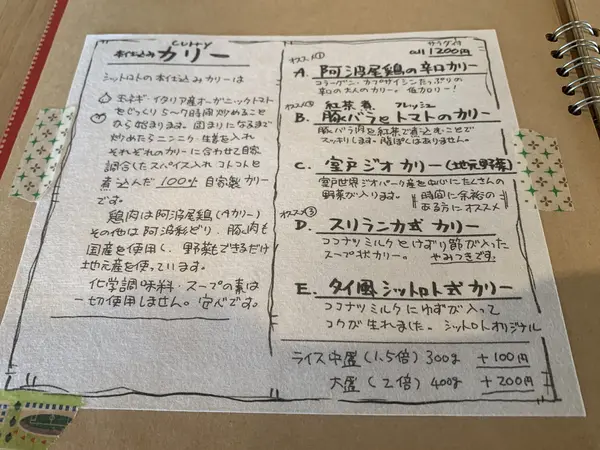 curry
本仕込みカリー
シットロトの本仕込みカリーは
玉ネギ・イタリア産オーガニックトマト
をじっくり5〜7時間炒めること
から始まります。固まりになるまで
炒めたらニンニク・生姜を入れ
それぞれのカリーに合わせて自家
調合したスパイス入れコトコトと
煮込んだ100%自家製カリー
です。
鶏肉は阿波尾鶏(Aカリー)
その他は阿波彩どり、豚肉も
国産を使用し、野菜もできるだけ
地元産を使っています。
化学調味料・スープの素は
一切使用しません。安心です。
サラダ付
all 1200円
オススメ①
A. 阿波尾鶏の辛口カリー
コラーゲン・カプサイシンたっぷりの
辛口の大人のカリー。低カロリー!
オススメ②
紅茶煮 フレッシュ
B. 豚バラとトマトのカリー
豚バラ肉を紅茶で煮込むことで
スッキリします。脂ぽくはありません。
C. 室戸ジオカリー(地元野菜)
室戸世界ジオパーク産を中心にたくさんの
野菜が入ります。
時間に余裕の
ある方にオススメ
オススメ③
D. スリランカ式カリー
ココナツミルクとけずり節が入った
スープ状カリー。 やみつきです。
E. タイ風シットロト式カリー
ココナツミルクにゆずが入って
コクが生れました。シットロトオリジナル
ライス中盛(1.5倍)300g +100円
大盛(2倍)400g +200円